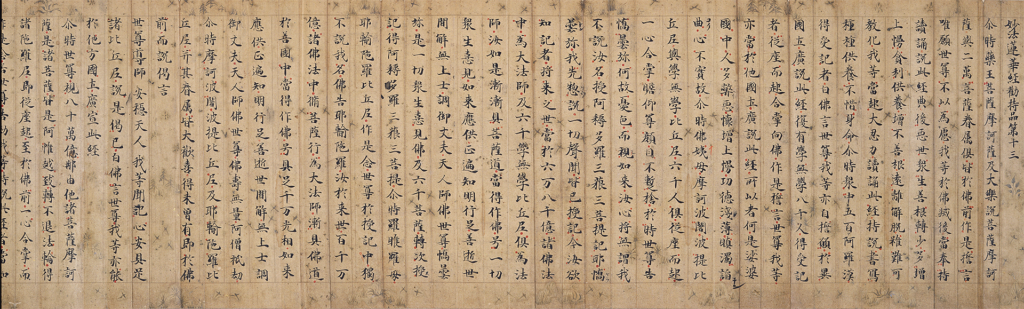 妙法蓮華經勸持品第十三
尒時藥王菩薩摩訶薩及大樂說菩薩摩訶
薩與二萬菩薩眷属俱皆於佛前作是擔言
唯願世尊不以為慮我等於佛滅後當奉持
讀誦說此經典後惡世衆生善根轉少多增
上慢貪利供養增不善根遠離解脫雖難可
教化我等當起大忍力讀誦此經持說書寫
種種供養不惜身命尒時衆中五百阿羅漢
得受記者白佛言世尊我等亦自擔願於異
國土廣說此經復有學無學八千人得受記
者從座而起合掌向佛作是擔言世尊我等
亦當於他國土廣說此經所以者何是娑婆
國中人多弊惡懷增上慢功德淺薄瞋濁諂
曲心不實故尒時佛姨母摩訶波闍波提比
丘尼與學無學比丘尼六千人俱從座而起
一心合掌瞻仰尊顏目不暫捨於時世尊告
憍曇弥何故憂色而視如來汝心將無謂我
不說汝名授阿耨多羅三藐三菩提記耶憍
曇弥我先揔說一切聲聞皆已授記今汝欲
知記者將來之世當於六万八千億諸佛法
中為大法師及六千學無學比丘尼俱為法
師汝如是漸漸具菩薩道當得作佛号一切
衆生憙見如來應供正遍知明行足善逝世
間解無上士調御丈夫天人師佛世尊憍曇
弥是一切衆生憙見佛及六千菩薩轉次授
記得阿耨多羅三藐三菩提尒時羅睺羅母
耶輸陁羅比丘尼作是念世尊於授記中獨
不說我名佛告耶輸陁羅汝於來世百千万
億諸佛法中脩菩薩行為大法師漸具佛道
於善國中當得作佛号具足千万光相如來
應供正遍知明行足善逝世間解無上士調
御丈夫天人師佛世尊佛壽無量阿僧祇劫
尒時摩訶波闍波提比丘尼及耶輸陁羅比
丘尼并其眷属皆大歡喜得未曾有即於佛
前而說偈言
世尊導師 安穩天人 我等聞記 心安具足
諸比丘尼說是偈已白佛言世尊我等亦能
於他方國土廣宣此經
尒時世尊視八十萬億那由他諸菩薩摩訶
薩是諸菩薩皆是阿惟越致轉不退法輪得
諸陁羅尼即從座起至於佛前一心合掌而